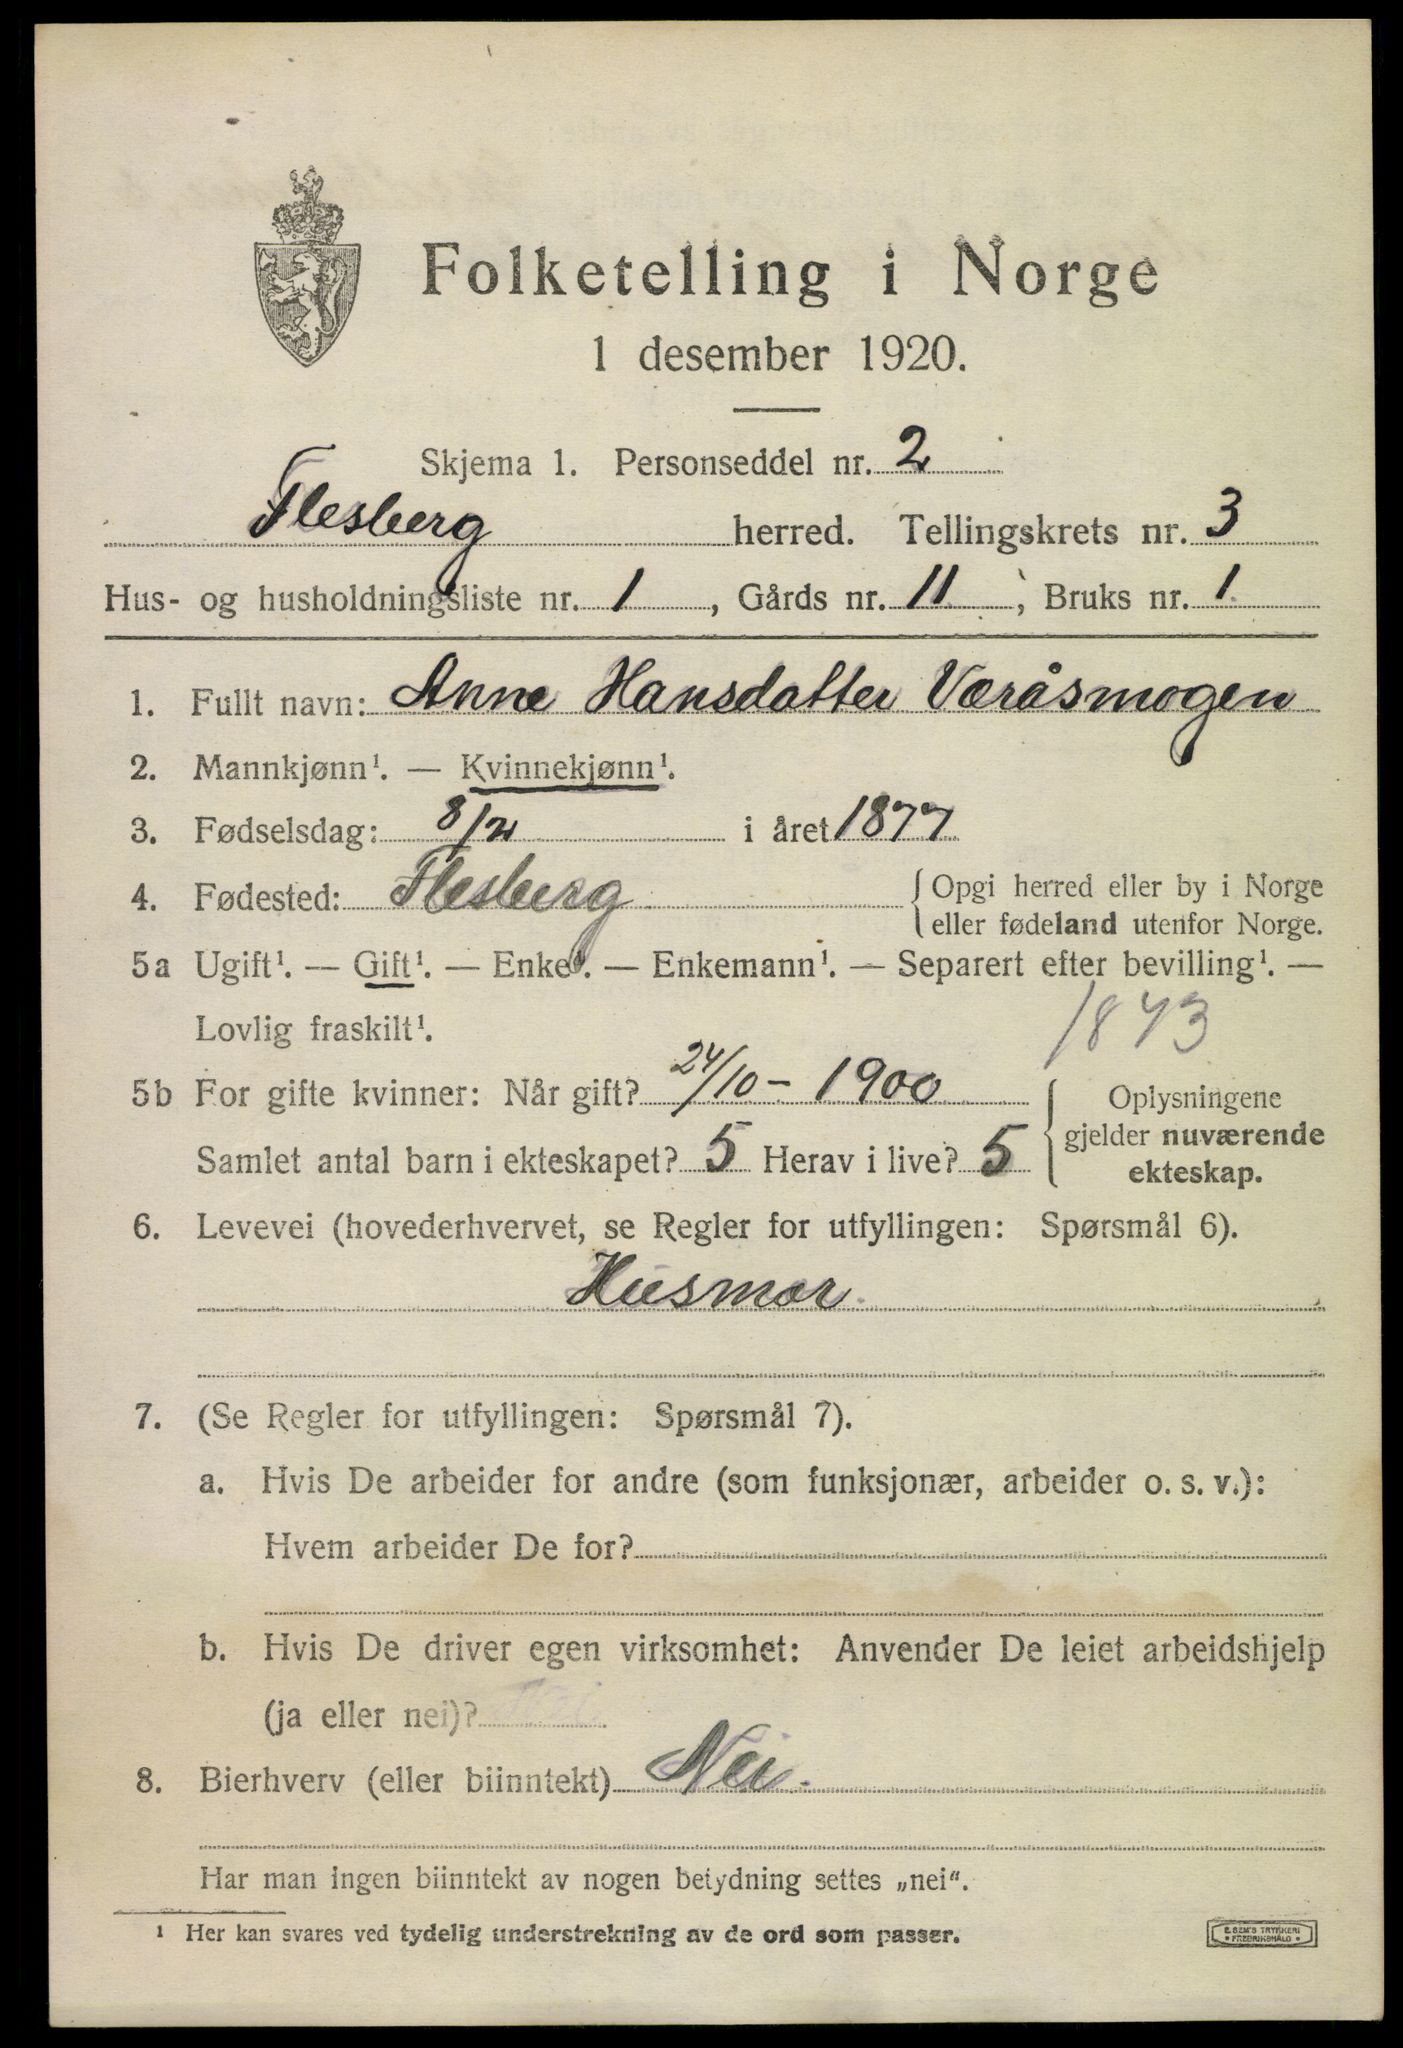 Folketelling i Norge
1 desember 1920.
Skjema 1. Personseddel nr. 2
Flesberg herred. Tellingskrets nr. 3
Hus- og husholdningsliste nr. 1, Gårds nr. 11, Bruks nr. 1
1. Fullt navn: Anne Hansdatter Væråsmogen
2. Mannkjønn¹. — Kvinnekjønn¹.
3. Fødselsdag: 8/2 i året 1877
4. Fødested: Flesberg { Opgi herred eller by i Norge
eller fødeland utenfor Norge.
5a Ugift¹. — Gift¹. — Enke¹. — Enkemann¹. — Separert efter bevilling¹. —
Lovlig fraskilt¹.
1843
5b For gifte kvinner: Når gift? 24/10 - 1900
Samlet antal barn i ekteskapet? 5 Herav i live? 5
{ Oplysningene
gjelder nuværende
ekteskap.
6. Levevei (hovederhvervet, se Regler for utfyllingen: Spørsmål 6).
Husmor.
7. (Se Regler for utfyllingen: Spørsmål 7).
a. Hvis De arbeider for andre (som funksjonær, arbeider o. s. v.):
Hvem arbeider De for?
b. Hvis De driver egen virksomhet: Anvender De leiet arbeidshjelp
(ja eller nei)? Nei
8. Bierhverv (eller biinntekt) Nei.
Har man ingen biinntekt av nogen betydning settes „nei“.
¹ Her kan svares ved tydelig understrekning av de ord som passer.
E. SEM'S TRYKKERI
• FREDRIKSHALD •